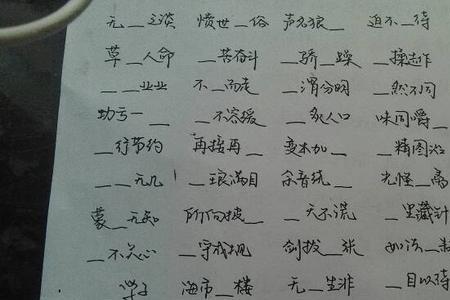 无__之谈 愤世__俗 声名狼__ 迫不__待
草__人命 __苦奋斗 __骄__躁 __揉造作
__ __业业 不__而走 __渭分明 __然不同
功亏一__ __不容缓 __炙人口 味同嚼__
__行节约 再接再__ 变本加__ __精图治
__ __无几 __琅满目 余音绕__ 光怪__离
蒙__无知 所向披__ __天大谎 __里藏针
__不关心 __守成规 剑拔__张 如法__制
学子 海市__楼 无__生非 __目以待